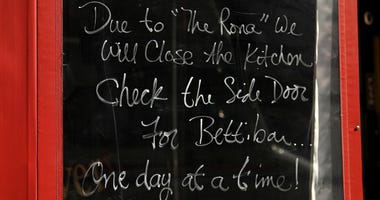 Due to "The Rona" We
Will Close the Kitchen
Check the Side Door
For Bettibar...
One day at a time!